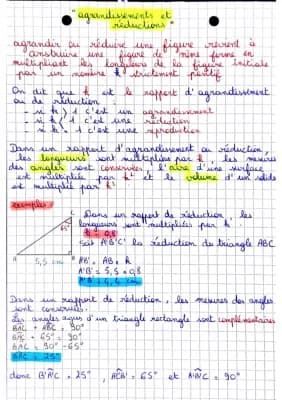 "agrandissements et
réductions"
agrandir ou réduire une figure revient à
construire une figure de même forme en
multipliant les longueurs de la figure initiale
par un nombre k strictement positif
On dit que k est le rapport d'agrandissement
ou de réduction
- si k > 1 c'est un agrandissement
- si k < 1 c'est une réduction
- si k = 1 c'est une reproduction
Dans un rapport d'agrandissement ou réduction,
les longueurs sont multipliées par k, les mesures
des angles sont conservées, l'aire d'une surface
est multipliée par k² et le volume d'un solide
est multiplié par k³
exemples
C
65°
A
5,5 cm
B
Dans un rapport de réduction les
longueurs sont multipliées par k.
k = 0,8
soit A'B'C' la réduction du triangle ABC
A'B' = AB × k
A'B' = 5,5 × 0,8
A'B' = 4,4 cm
Dans un rapport de réduction, les mesures des angles
sont conservées.
Les angles aigus d'un triangle rectangle sont complémentaires
BAC + ABC = 90°
BAC + 65° = 90°
BAC = 90° - 65°
BAC = 25°
donc B'A'C' = 25°, A'C'B' = 65° et A'B'C' = 90°